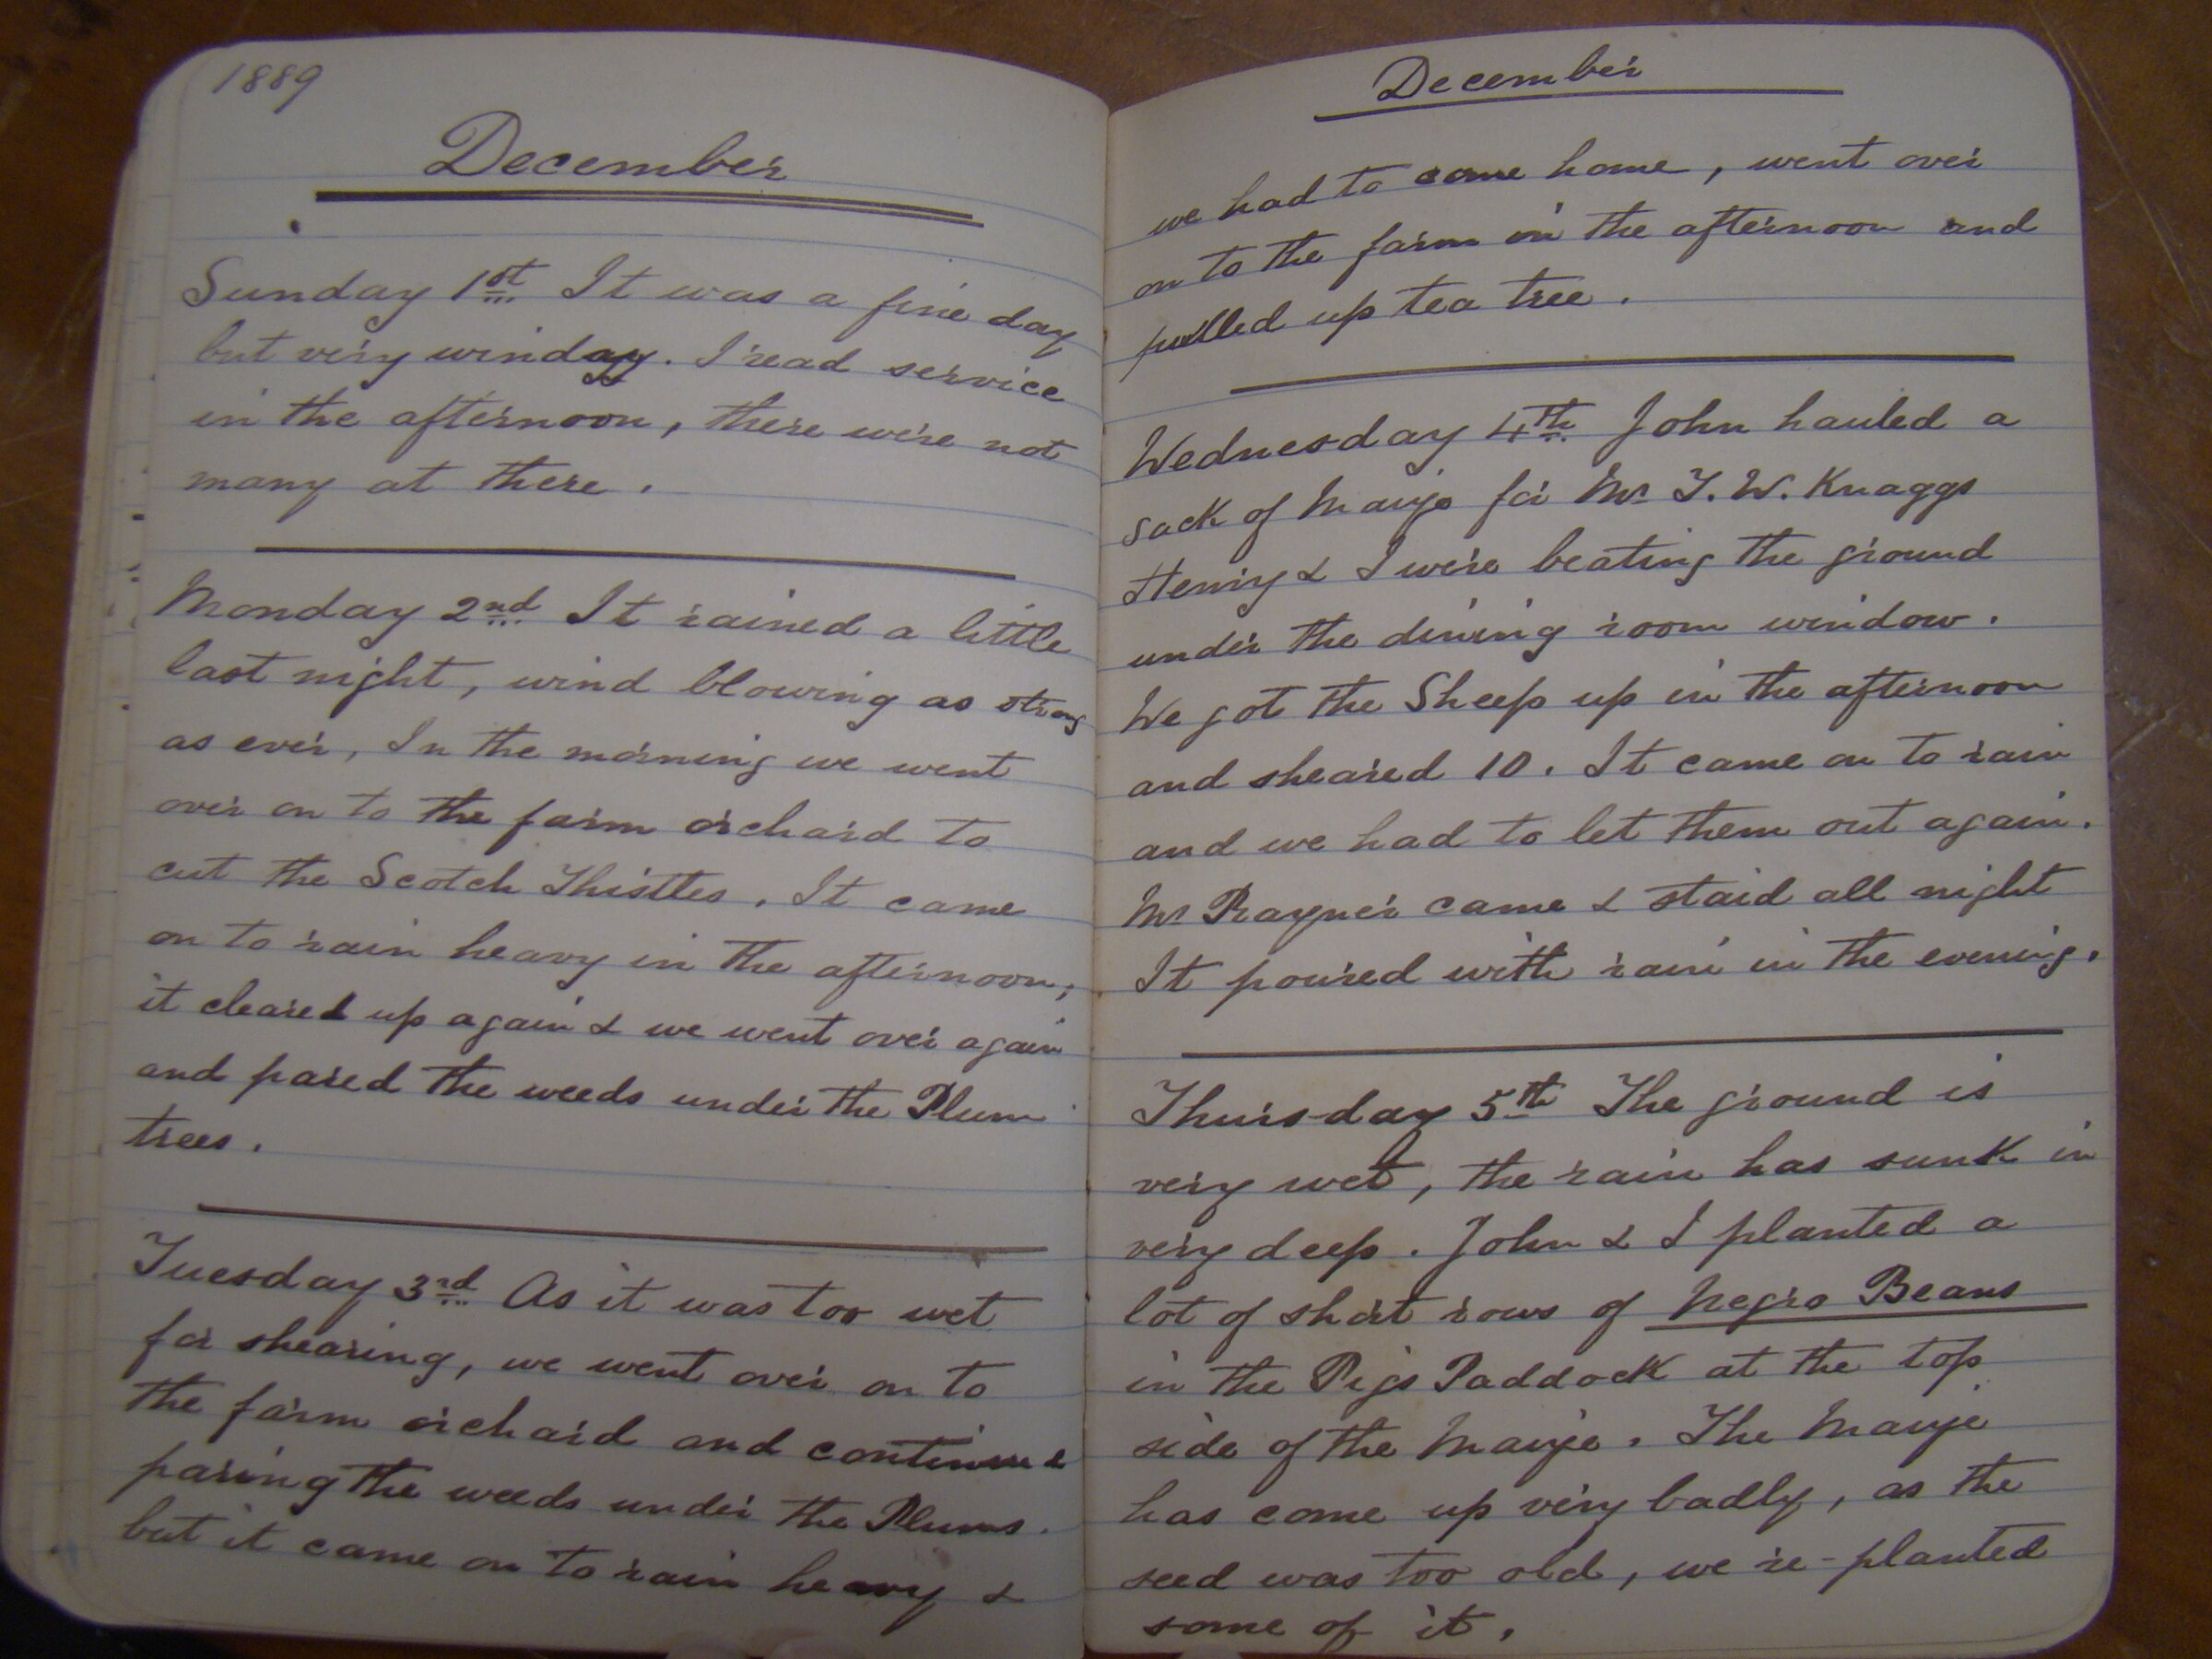 1889
December
Sunday 1st It was a fine day
but very winday. I read service
in the afternoon, there were not
many at there.
Monday 2nd It rained a little
last night, wind blowing as strong
as ever, In the morning we went
over on to the farm orchard to
cut the Scotch Thistles. It came
on to rain heavy in the afternoon;
it cleared up again & we went over again
and pared the weeds under the Plum
trees.
Tuesday 3rd As it was too wet
for shearing, we went over on to
the farm orchard and continued
paring the weeds under the Plums.
but it came on to rain heavy &
December
we had to come home, went over
on to the farm in the afternoon and
pulled up tea tree.
Wednesday 4th John hauled a
sack of Maize for Mr T. W. Knaggs
Henry & I were beating the ground
under the dining room window.
We got the Sheep up in the afternoon
and sheared 10. It came on to rain
and we had to let them out again.
Mr Rayner came & staid all night
It poured with rain in the evening.
Thursday 5th The ground is
very wet, the rain has sunk in
very deep. John & I planted a
lot of short rows of Negro Beans
in the Pigs Paddock at the top
side of the Maize. The Maize
has come up very badly, as the
seed was too old, we re-planted
some of it.